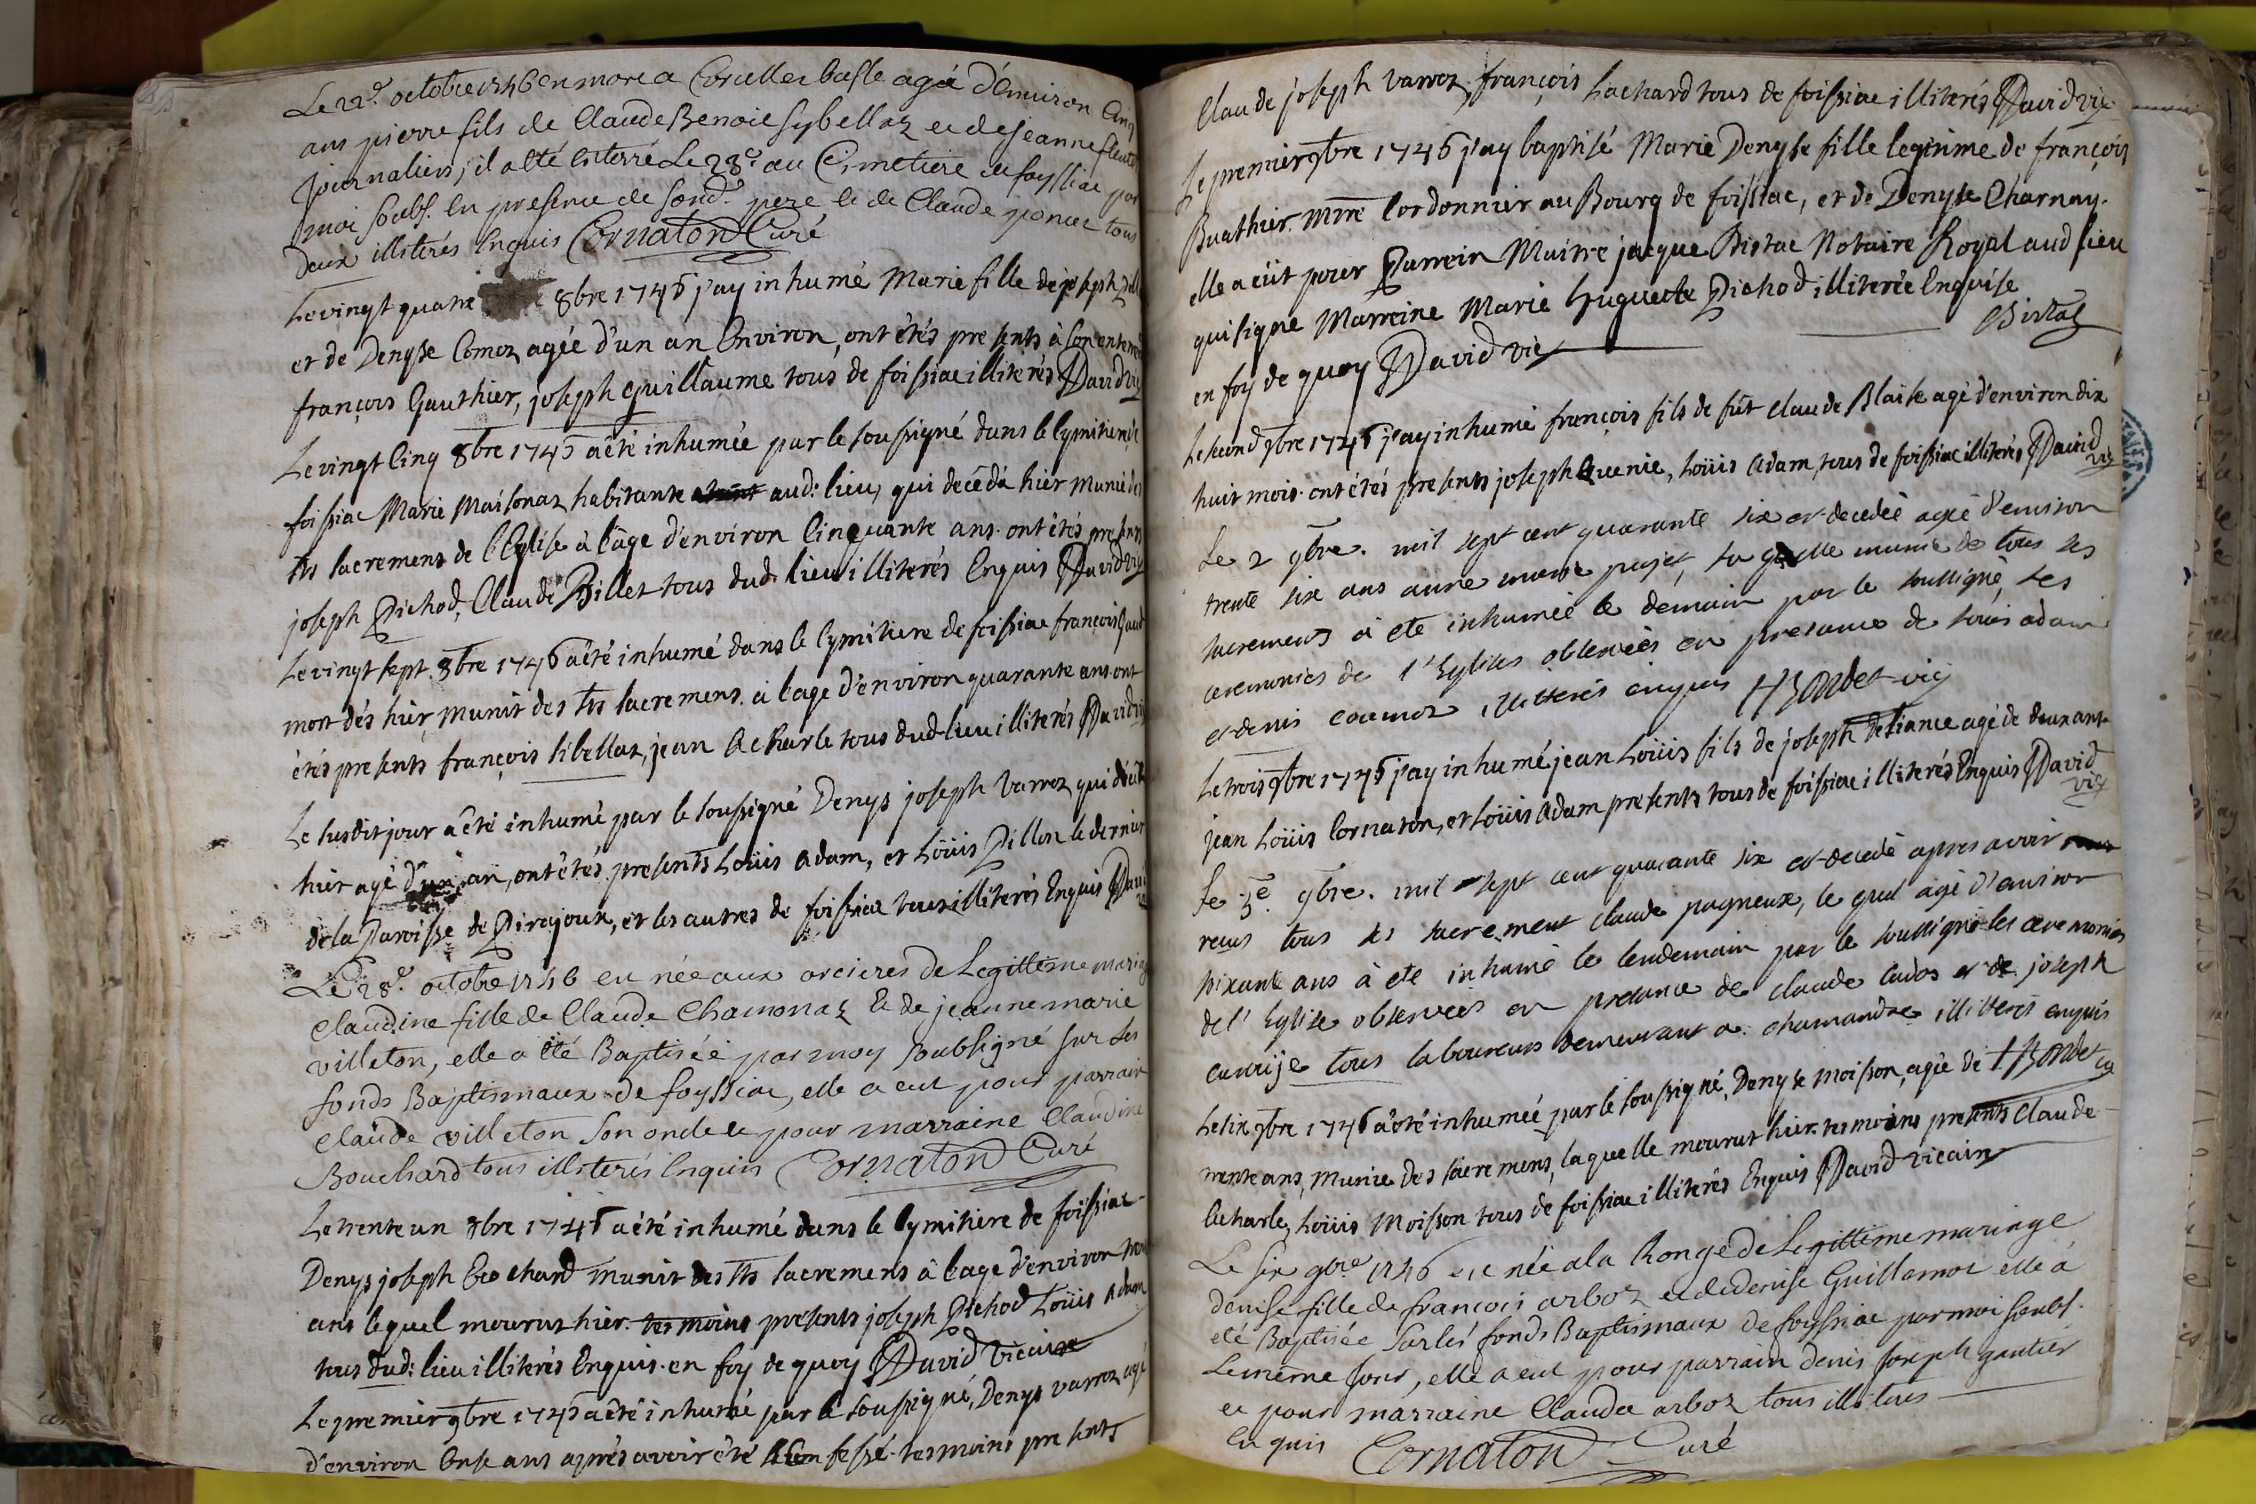 Le 22e. octobre 1746 en mort a Corcelles basse agé d'environ Cinq
ans pierre fils de Claude Benoit Sybellaz et de jeanne
journaliers, il a été enterré Le 23e au Cimetiere de foyssiac par
moi soubs. en presence de sond. pere et de Claude poncet tous
deux illiterés enquis Cornaton Curé
Le vingt quatre 8bre 1746 j'ay inhumé Marie fille de joseph
et de Denyse Comoz agée d'un an Environ, ont étés presents à son enterre
françois Gauthier, joseph guillaume tous de foissiac illiterés David vic
Le vingt Cinq 8bre 1746 a été inhumée par le soussigné dans le Cymitiere de
foissiac Marie Maisonaz habitante aud: lieu, qui deceda hier munie des
sts sacremens de l'Eglise à l'âge d'environ Cinquante ans. ont étés presents
joseph Pichod, Claude Billet tous dud: lieu illiterés Enquis David vic
Le vingt sept 8bre 1746 a été inhumé dans le Cymitiere de foissiac françois
mort dés hier, munit des sts sacremens à l'age d'environ quarante ans. ont
étés presents françois sibellaz, jean Acharle tous dud lieu illiterés David vic
Le susdit jour a été inhumé par le soussigné Denys joseph Varroz qui
hier agé d'un an, ont étés presents Loüis Adam, et Loüis Pillon le dernier
de la Paroisse de Pirajoux, et les autres de foissiac tous illiterés Enquis David
Le 28e. octobre 1746 est née aux orcieres de Legittime mariag
Claudine fille de Claude Chamonaz et de jeanne marie
villeton, elle a été Baptisée par moy soubsigné sur les
fonds Baptismaux de foyssiac, elle a eut pour parrain
Claude villeton son oncle et pour marraine Claudine
Bouchard tous illiterés enquis Cornaton Curé
Le trente un 8bre 1746 a été inhumé dans le Cymitiere de foissiac
Denys joseph Brochard munit des sts sacremens à l'age d'environ
ans lequel mourut hier. tesmoins presents joseph Pichod Loüis Adam
tous dud: lieu illiterés Enquis. en foy de quoy David vicaire
Le premier 9bre 1746 a été inhumé par le soussigné, Denys varroz agé
d'environ Onse ans après avoir été Confessé. tesmoins presents
Claude joseph varroz, françois Lachard tous de foissiac illiterés David vic
Le premier 9bre 1746 j'ay baptisé Marie Denyse fille legitime de françois
Buathier. mtre Cordonnier au Bourg de foissiac, et de Denyse Charnay.
elle a eüt pour Parrein Maitre jacque Bistac Notaire Royal aud lieu
qui signe Marreine Marie huguette Pichod illiterée Enquise
en foy de quoy David vic Bistac
Le second 9bre 1746 j'ay inhumé françois fils de fût Claude Blaise agé d'environ dix
huit mois. ont étés presents joseph Cuenie, Loüis Adam tous de foissiac illiterés David vic
Le 2 9bre. mil sept cent quarante six est decedée agée d'environ
trente six ans anne marie pujet, la quelle munie de tous ses
sacrements à eté inhumée le demain par le soussigné, les
ceremonies de l'Eglises observées en presance de louis adam
et denis coumoz illitterés enquis HBondet vic
Le trois 9bre 1746 j'ay inhumé jean Loüis fils de joseph defiance agé de deux ans.
jean Loüis Cornaton, et Loüis Adam presents tous de foissiac illiterés Enquis David vic
Le 5e 9bre. mil sept cent quarante six est decedé apres avoir
reçus tous les sacrement Claude pagneux, le quel agé d'environ
soixante ans à eté inhumé le lendemain par le soussigné les ceremonies
de l'Eglise observées en presance de claude cados et de joseph
tous laboureurs demeurant a chamandre illitterés enquis
HBondet vic
Le six 9bre 1746 a été inhumeé par le soussigné, Denyse moisson, agée de
trente ans, munie des sacremens, laquelle mourut hier. tesmoins presents Claude
Acharle, Loüis Moisson tous de foissiac illiterés Enquis David vicaire
Le six 9bre 1746 est née a la Ronge de Legittime mariage
denise fille de françois arboz et de denise Guillamot elle a
eté Baptisée sur les fonds Baptismaux de foyssiac par moi soubs.
Le même jour, elle a eut pour parrain denis joseph gautier
et pour marraine Claudea arboz tous illiterés
enquis Cornaton Curé